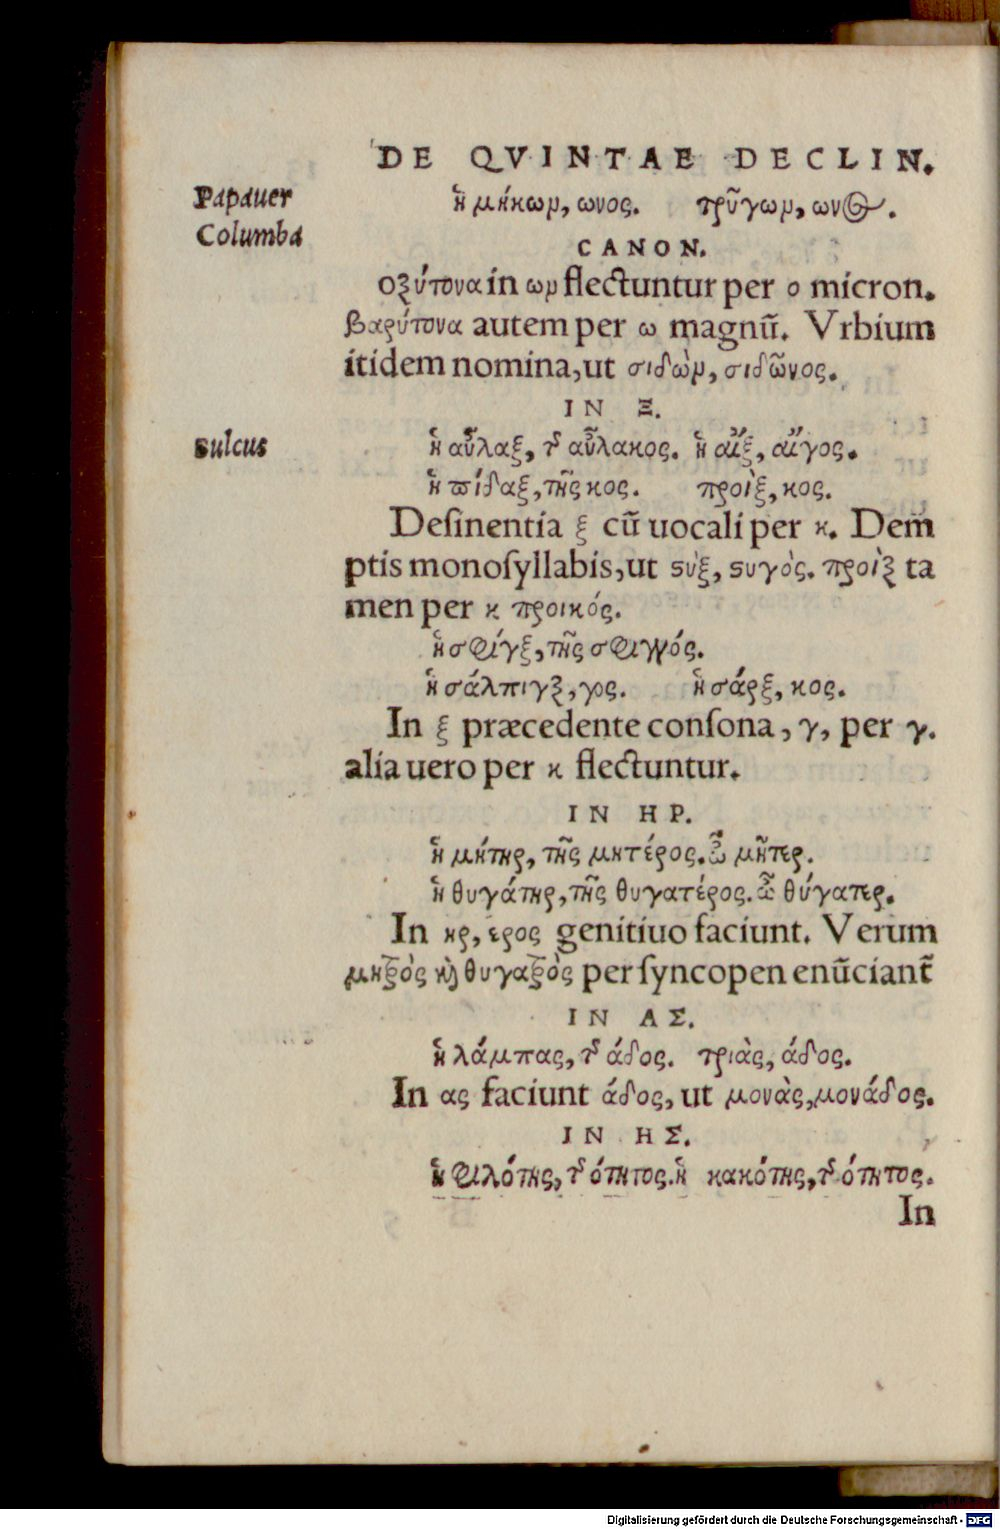 DE QVINTAE DECLIN.
Papauer
ἡ μήκων, ωνος. τρῦγων, ωνος.
Columba
CANON.
οξύτονα in ων flectuntur per ο micron.
βαρύτονα autem per ω magnũ. Vrbium
itidem nomina, ut σιδὼν, σιδῶνος.
IN Ξ.
Sulcus
ἡ αὖλαξ, τ͂ αὖλακος. ἡ αἴξ, αἴγος.
ἡ πίδαξ, τῆς κος. προὶξ, κος.
Deſinentia ξ cũ uocali per κ. Dem
ptis monoſyllabis, ut ςυὲξ, ςυγὸς. προὶξ ta
men per κ προικός.
ἡ σφίγξ, τῆς σφιγγός.
ἡ σάλπιγξ, γος. ἡ σάρξ, κος.
In ξ præcedente conſona, γ, per γ.
alia uero per κ flectuntur.
IN ΗΡ.
ἡ μήτηρ, τῆς μητέρος. ὦ μῆτερ.
ἡ θυγάτηρ, τῆς θυγατέρος. ὦ θύγατερ.
In ηρ, ερος genitiuo faciunt. Verum
μητρὸς καὶ θυγατρὸς per ſyncopen enũciant̃
IN ΑΣ.
ἡ λάμπας, τ͂ άδος. τριὰς, άδος.
In ας faciunt άδος, ut μονὰς, μονάδος.
IN ΗΣ.
ἡ φιλότης, τ͂ ότητος. ἡ κακότης, τ͂ ότητος.
In
Digitalisierung gefördert durch die Deutsche Forschungsgemeinschaft - DFG